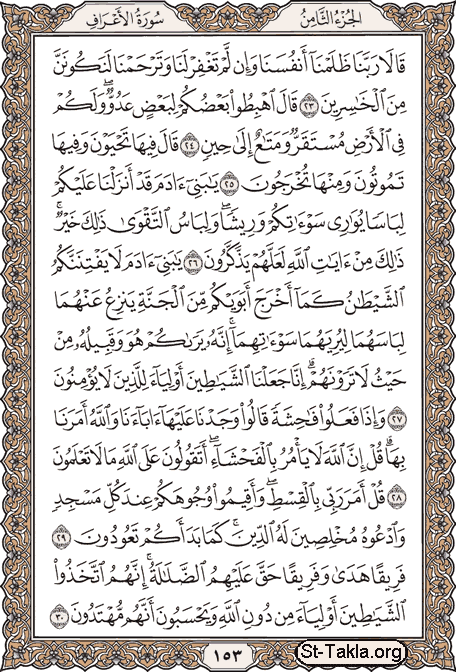 الجزء الثامن
سورة الأعراف
قَالَا رَبَّنَا ظَلَمْنَا أَنفُسَنَا وَإِن لَّمْ تَغْفِرْ لَنَا وَتَرْحَمْنَا لَنَكُونَنَّ
مِنَ ٱلْخَٰسِرِينَ ٢٣ قَالَ ٱهْبِطُوا۟ بَعْضُكُمْ لِبَعْضٍ عَدُوٌّ ۖ وَلَكُمْ
فِى ٱلْأَرْضِ مُسْتَقَرٌّ وَمَتَٰعٌ إِلَىٰ حِينٍ ٢٤ قَالَ فِيهَا تَحْيَوْنَ وَفِيهَا
تَمُوتُونَ وَمِنْهَا تُخْرَجُونَ ٢٥ يَٰبَنِىٓ ءَادَمَ قَدْ أَنزَلْنَا عَلَيْكُمْ
لِبَاسًا يُوَٰرِى سَوْءَٰتِكُمْ وَرِيشًا ۖ وَلِبَاسُ ٱلتَّقْوَىٰ ذَٰلِكَ خَيْرٌ ۚ
ذَٰلِكَ مِنْ ءَايَٰتِ ٱللَّهِ لَعَلَّهُمْ يَذَّكَّرُونَ ٢٦ يَٰبَنِىٓ ءَادَمَ لَا يَفْتِنَنَّكُمُ
ٱلشَّيْطَٰنُ كَمَآ أَخْرَجَ أَبَوَيْكُم مِّنَ ٱلْجَنَّةِ يَنزِعُ عَنْهُمَا
لِبَاسَهُمَا لِيُرِيَهُمَا سَوْءَٰتِهِمَآ ۗ إِنَّهُۥ يَرَىٰكُمْ هُوَ وَقَبِيلُهُۥ مِنْ
حَيْثُ لَا تَرَوْنَهُمْ ۗ إِنَّا جَعَلْنَا ٱلشَّيَٰطِينَ أَوْلِيَآءَ لِلَّذِينَ لَا يُؤْمِنُونَ
٢٧ وَإِذَا فَعَلُوا۟ فَٰحِشَةً قَالُوا۟ وَجَدْنَا عَلَيْهَآ ءَابَآءَنَا وَٱللَّهُ أَمَرَنَا
بِهَا ۗ قُلْ إِنَّ ٱللَّهَ لَا يَأْمُرُ بِٱلْفَحْشَآءِ ۖ أَتَقُولُونَ عَلَى ٱللَّهِ مَا لَا تَعْلَمُونَ
٢٨ قُلْ أَمَرَ رَبِّى بِٱلْقِسْطِ ۖ وَأَقِيمُوا۟ وُجُوهَكُمْ عِندَ كُلِّ مَسْجِدٍ
وَٱدْعُوهُ مُخْلِصِينَ لَهُ ٱلدِّينَ ۚ كَمَا بَدَأَكُمْ تَعُودُونَ ٢٩
فَرِيقًا هَدَىٰ وَفَرِيقًا حَقَّ عَلَيْهِمُ ٱلضَّلَٰلَةُ ۗ إِنَّهُمُ ٱتَّخَذُوا۟
ٱلشَّيَٰطِينَ أَوْلِيَآءَ مِن دُونِ ٱللَّهِ وَيَحْسَبُونَ أَنَّهُم مُّهْتَدُونَ ٣٠
١٥٣
St-Takla.org